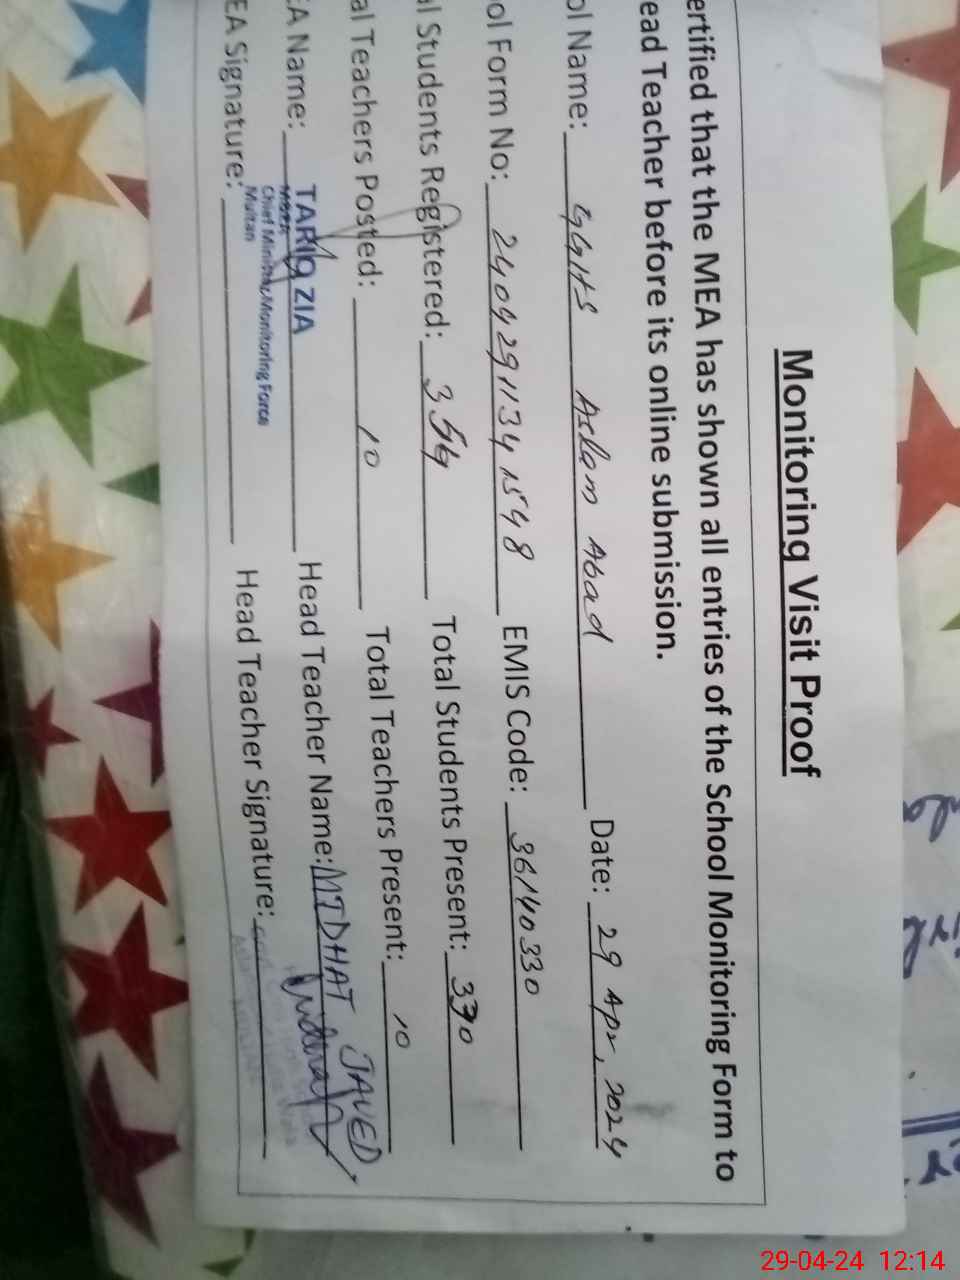 Monitoring Visit Proof
ertified that the MEA has shown all entries of the School Monitoring Form to
ead Teacher before its online submission.
ol Name: GGHS Aslam Abad Date: 29 Apr, 2024
ol Form No: 24042911341548 EMIS Code: 36140330
al Students Registered: 354 Total Students Present: 330
al Teachers Posted: 10 Total Teachers Present: 10
EA Name: TARIQ ZIA Head Teacher Name: MIDHAT JAVED
MEA
Chief Minister Monitoring Force
Multan
EA Signature: Head Teacher Signature:
29-04-24 12:14